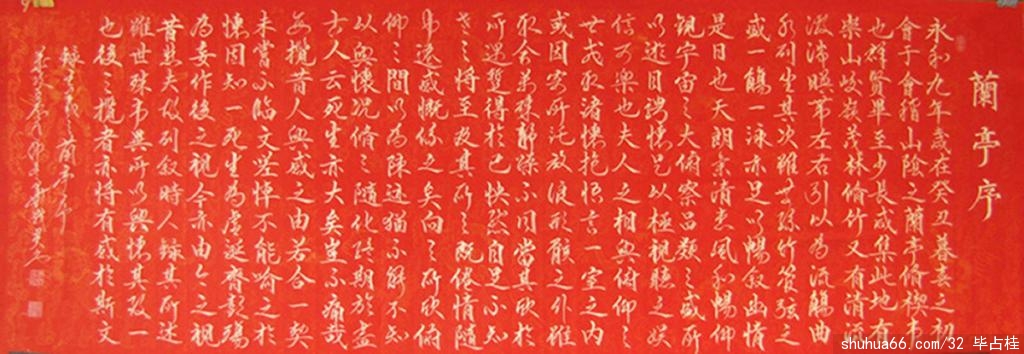 蘭亭序
永和九年歲在癸丑暮春之初
會于會稽山陰之蘭亭脩禊事
也群賢畢至少長咸集此地有
崇山峻嶺茂林脩竹又有清流
激湍暎帶左右引以為流觴曲
水列坐其次雖無絲竹管弦之
盛一觴一詠亦足以暢敘幽情
是日也天朗氣清惠風和暢仰
觀宇宙之大俯察品類之盛所
以遊目騁懷足以極視聽之娛
信可樂也夫人之相與俯仰一
世或取諸懷抱悟言一室之內
或因寄所託放浪形骸之外雖
取舍萬殊靜躁不同當其欣於
所遇蹔得於己快然自足不知
老之將至及其所之既倦情隨
事遷感慨係之矣向之所欣俯
仰之間以為陳迹猶不能不
以興懷況脩短隨化終期於盡
古人云死生亦大矣豈不痛哉
每攬昔人興感之由若合一契
未嘗不臨文嗟悼不能喻之於
懷固知一死生為虛誕齊彭殤
為妄作後之視今亦由今之視
昔悲夫故列敘時人錄其所述
雖世殊事異所以興懷其致一
也後之攬者亦將有感於斯文
錄王羲之蘭亭序
shuhua66.com/32 毕占桂